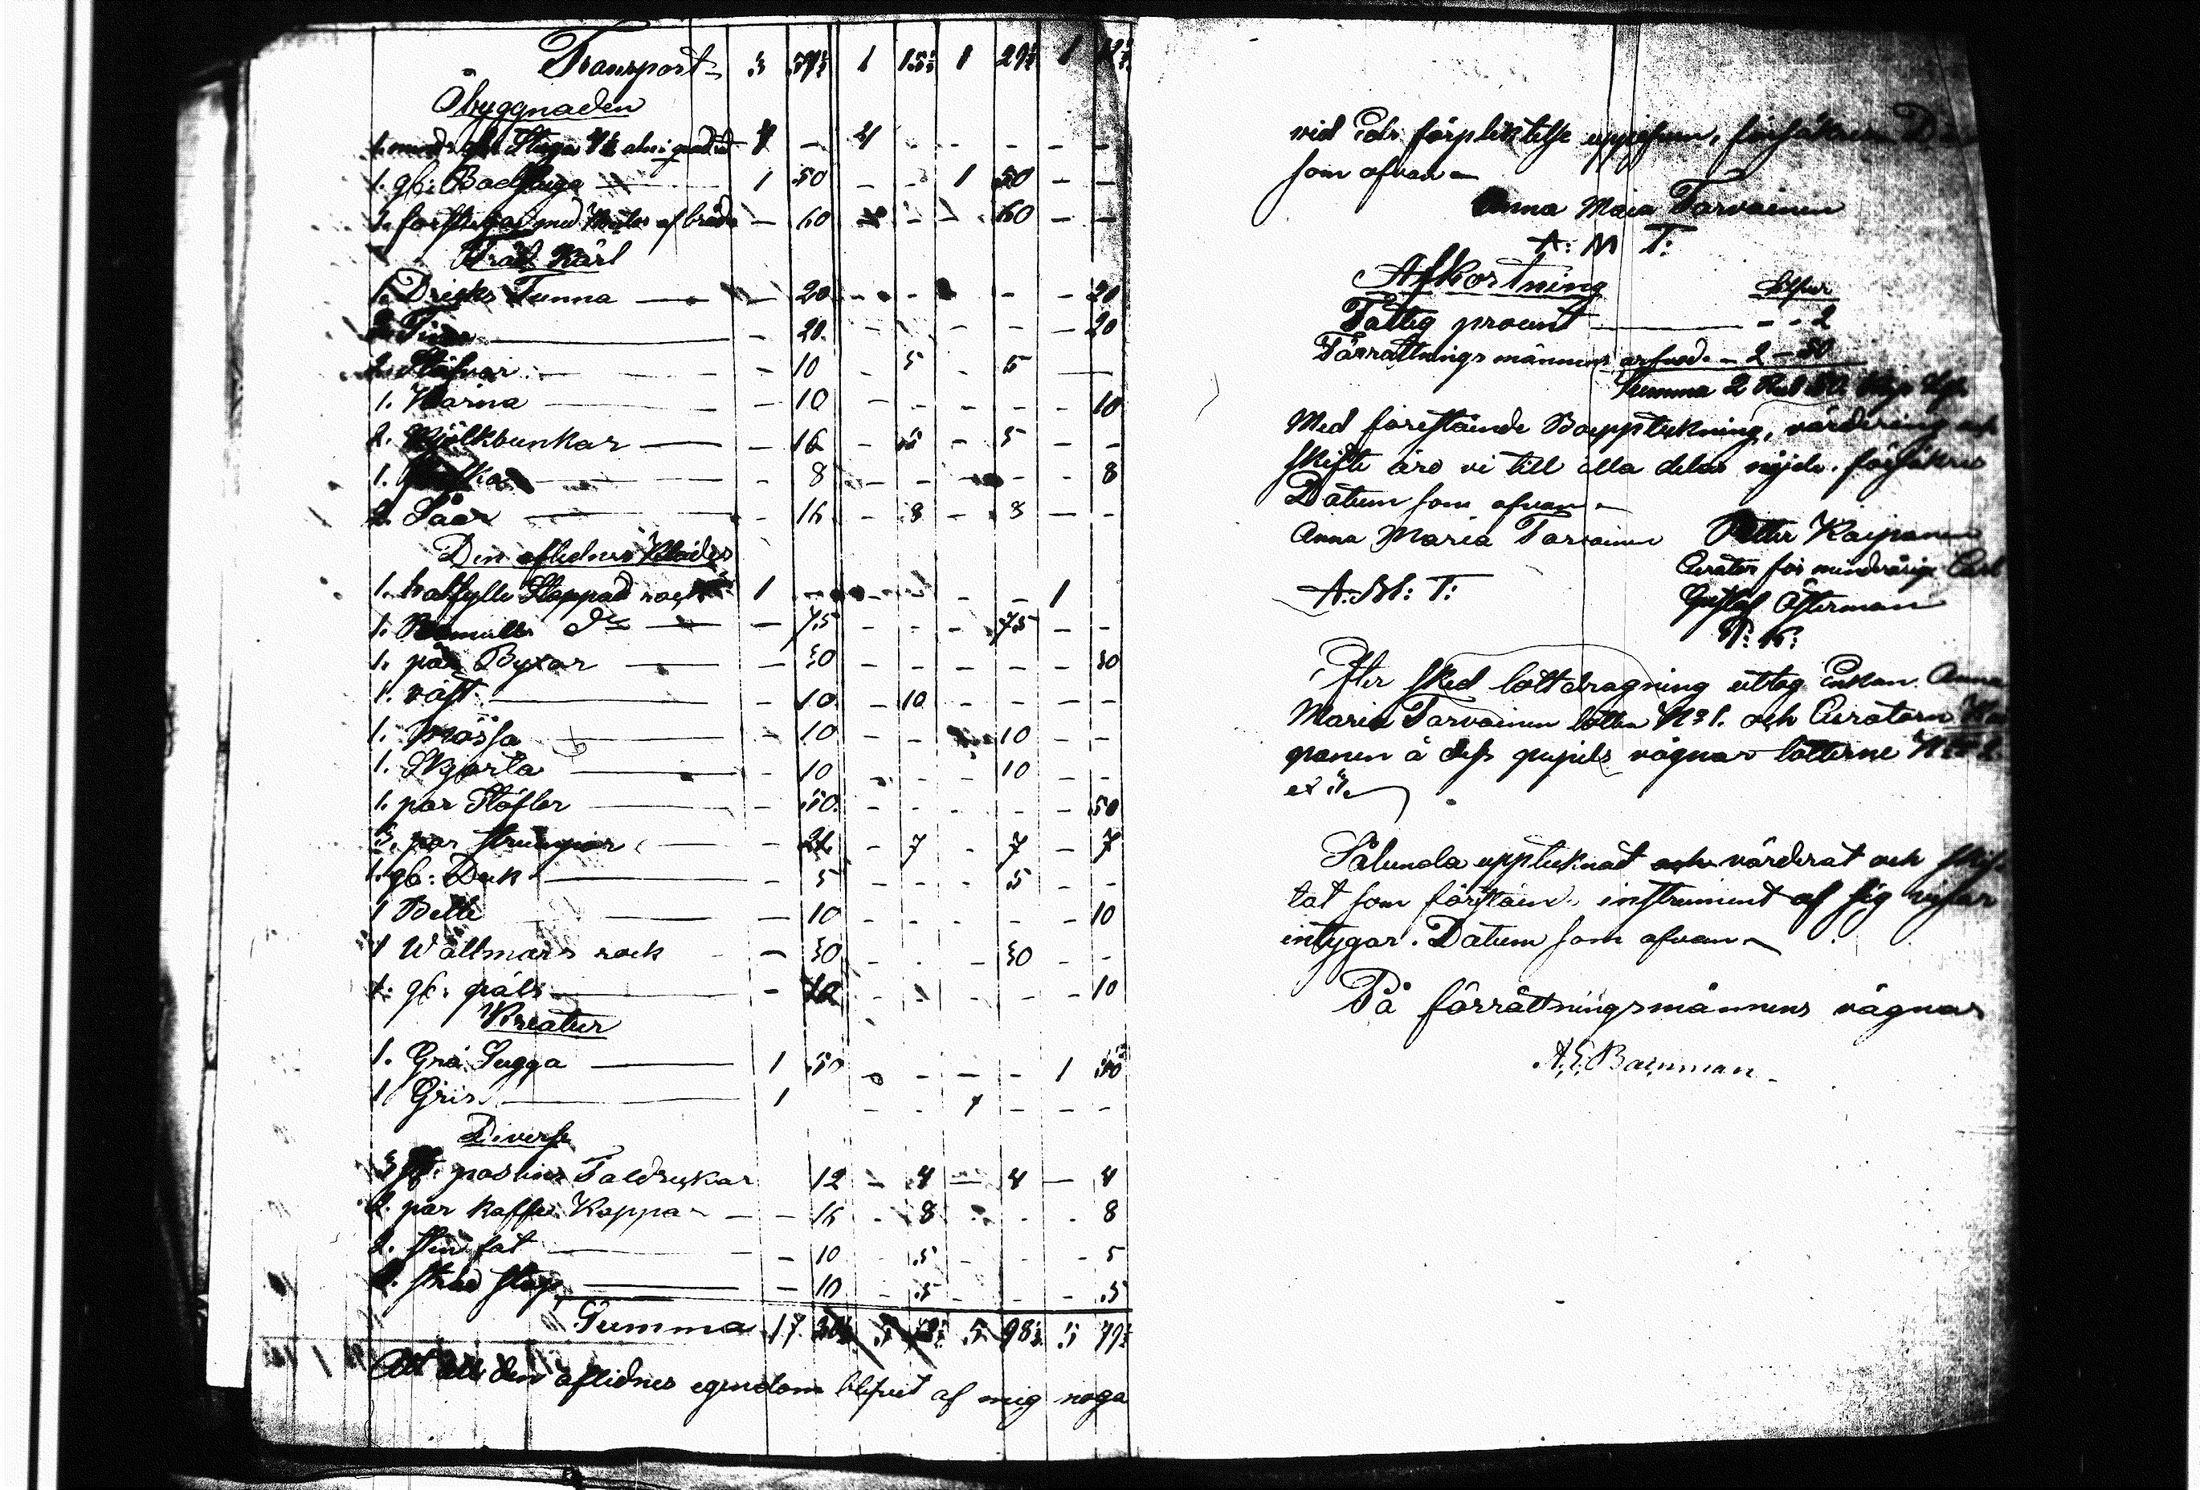 Transport 3 59½ 1 15½ 1 29½ 1 14½
Åbyggnaden
1. mindre gl: Stuga 7½ aln: i quadrat 4 – 4 – – – – –
1. gl: Badstuga 1 50 – – 1 50 – –
1. med af bräder – 60 – – – 60 – –
Träd Kärl
1. Dricks Tunna – 20 – – – – – 20
2. – 20 – – – – – 20
2. Stäfvor – 10 – 5 – 5 –
1. Kärna – 10 – – – – – 10
2. Mjölkbunkar – 16 – – 5 – –
1. – 8 – – – – – 8
2. Såar – 16 – 8 – 8 – –
Den aflidnes Kläder
1. halfylle Stoppad rock 1 – – – – – 1
1. Bomulls d:o – 75 – – – 75 – –
1. par Byxor – 30 – – – – – 30
1. väst – 10 – 10 – – – –
1. Mössa – 10 – – – 10 – –
1. Skjorta – 10 – – – 10 – –
1. par Stöflor – 50 – – – – – 50
3. par strumpor – 21 – 7 – 7 – 7
1. gl: Duk – 5 – – – 5 – –
1 Bälte – 10 – – – – – 10
1 Wallmars rock – 30 – – – 30 – –
1. gl: päls – 10 – – – – – 10
Kreatur
1. Grå Sugga 1 50 – – – – 1 50
1 Gris 1 – – 1 – – –
Diverse
3 st. poslins Taldrickar 12 – 4 – 4 – 4
2. par kaffe Koppar – 16 – 8 – – – 8
2. sten fat – 10 – 5 – – – 5
2. stop – 10 – 5 – – – 5
Summa 17 5 5 98½ 5 79½
Att all den aflidnes egendom blifvit af mig noga
vid Eds förpliktelse uppgifven, försäkrar
som ofvan
Anna Maria Tarvainen
A: M T:
Afkortning Silfver
Fattig procent – – 2
Förrättnings männens arfvode – 2 – 50
Summa 2 Rub
Med förestående Bouppteckning, värdering och
skifte äro vi till alla delar nöjde, försäkre
Datum som ofvan
Anna Maria Tarvainen Petter Kaipanen
Curator för mindårige Carl
A: M: T: Gustaf Österman
P: K:
Efter sked lottdragning uttog Enkan Anna
Maria Tarvainen lotten N:o 1. och Curatorn Kai
panen å dess pupils vägnar lotterne N:o 2
et 3.
Sålunda upptecknat och värderat och skif
tat som förestående instrument af sig visar
intygar. Datum som ofvan
På förrättningsmännens vägnar
A. E. Baernman